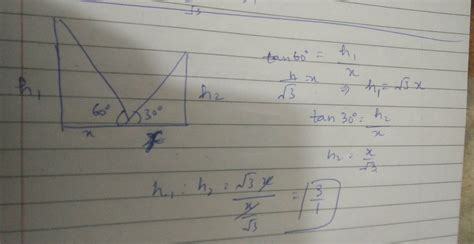 √3
h₁
60°
30°
h₂
x
tan60° = h₁/x
x/√3 ⇒ h₁ = √3 x
tan 30° = h₂/x
h₂ = x/√3
h₁ : h₂ = √3 x / (x/√3) = 3/1